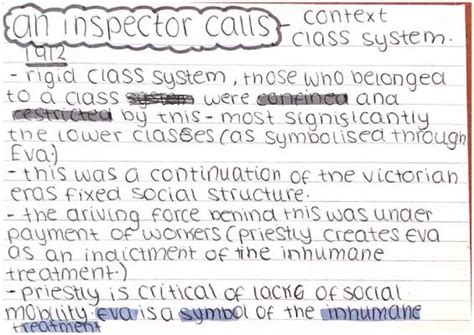 an inspector calls - context
class system.
1912
- rigid class system, those who belonged
to a class system were confined and
restricted by this - most significantly
the lower classes (as symbolised through
Eva.)
- this was a continuation of the victorian
eras fixed social structure.
- the driving force behind this was under
payment of workers (priestly creates eva
as an indictment of the inhumane
treatment.)
- priestly is critical of lack of social
mobility eva is a symbol of the inhumane
treatment